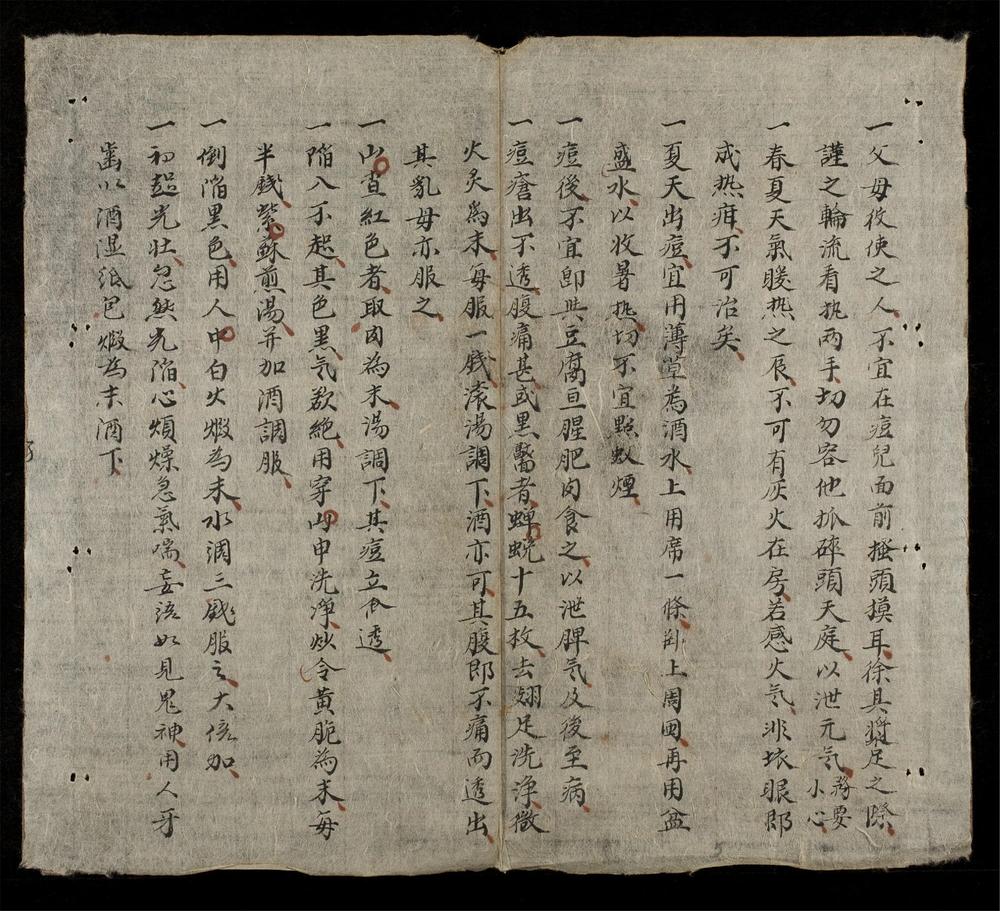 一父母役使之人不宜在痘兒面前搔頭摸耳徐其漿足之際
謹之輪流看执兩手切勿容他抓碎頭天庭以泄元氣務要小心
一春夏天氣暖热之辰不可有灰火在房若感火氣非坏眼即
成热疳不可治矣
一夏天出痘宜用薄草為酒水上用席一條刹上周圍再用盆
盛水以收暑热切不宜點蚊煙
一痘後不宜即與豆腐亘腥肥肉食之以泄脾氣及後至病
一痘瘄出不透腹痛甚或黑靨者蟬蛻十五枚去翅足洗淨微
火炙為末每服一錢滚湯調下酒亦可其腹即不痛而透出
其乳母亦服之
一山查紅色者取肉為末湯調下其痘立食透
一陷入不起其色黑气欲絕用穿山甲洗淨炒令黄脆為末每
半錢紫蘇煎湯并加酒調服
一倒陷黑色用人中白火煅為末水調三錢服之大倍加
一初起光壮忽然光陷心煩燥急氣喘妄語如見鬼神用人牙
齒以酒湿紙包煅為末酒下